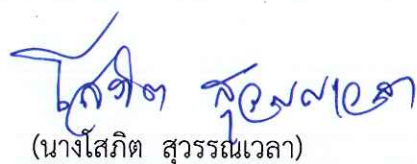 โสภิต สุวรรณเวลา
(นางโสภิต สุวรรณเวลา)